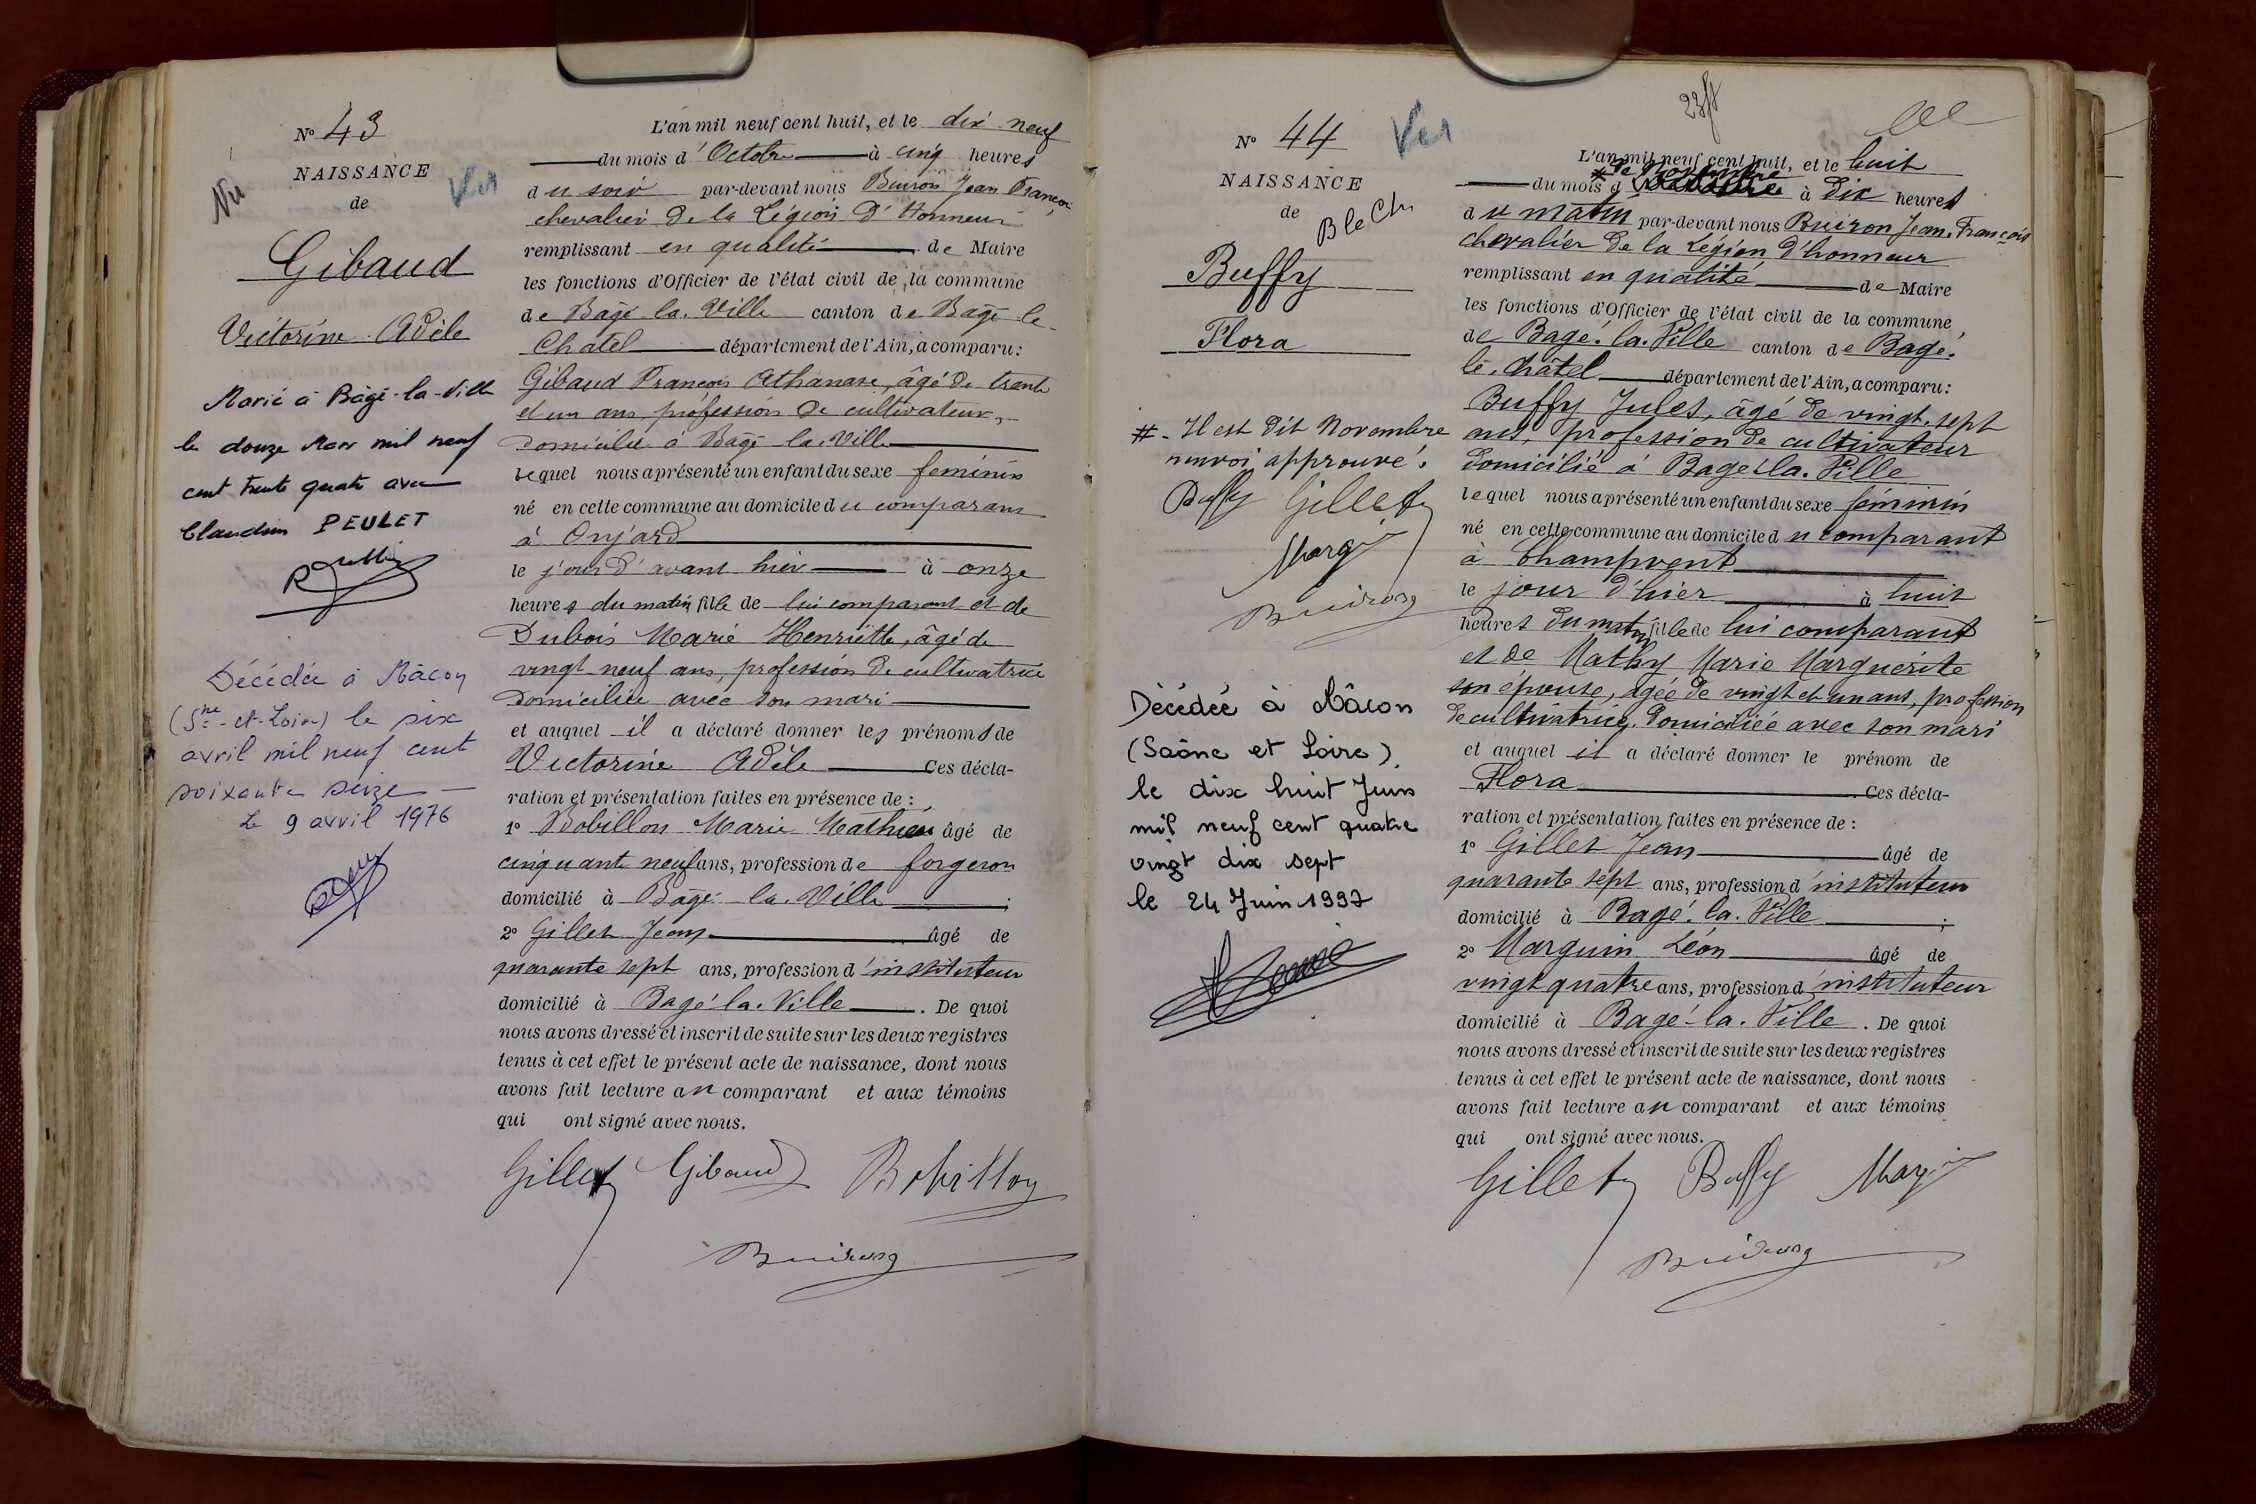 N° 43
NAISSANCE
de
Vu
Gibaud
Victorine Adèle
Marié à Bâgé-la-Ville
le douze Mars mil neuf
cent trente quatre avec
Claudius PEULET
Décédée à Mâcon
(Sne-et-Loire) le six
avril mil neuf cent
soixante seize —
Le 9 avril 1976
L'an mil neuf cent huit, et le dix neuf
du mois d'Octobre à cinq heures
du soir par-devant nous Buiron Jean François
chevalier de la Légion d'Honneur
remplissant en qualité de Maire
les fonctions d'Officier de l'état civil de la commune
de Bâgé la Ville canton de Bâgé le
Châtel département de l'Ain, a comparu :
Gibaud François Athanase, âgé de trente
et un ans, profession de cultivateur,
domicilié à Bâgé la Ville
lequel nous a présenté un enfant du sexe féminin
né en cette commune au domicile du comparant
à Onjard
le jour d'avant hier à onze
heures du matin fille de lui comparant et de
Dubois Marie Henriette, âgé de
vingt neuf ans, profession de cultivatrice
domiciliée avec son mari
et auquel il a déclaré donner les prénoms de
Victorine Adèle Ces décla-
ration et présentation faites en présence de :
1° Bobillon Marie Mathieu âgé de
cinquante neuf ans, profession de forgeron
domicilié à Bâgé la Ville ;
2° Gillet Jean âgé de
quarante sept ans, profession d'instituteur
domicilié à Bagé la Ville . De quoi
nous avons dressé et inscrit de suite sur les deux registres
tenus à cet effet le présent acte de naissance, dont nous
avons fait lecture au comparant et aux témoins
qui ont signé avec nous.
Gillet Gibaud Bobillon
Buiron
23 ft
N° 44
NAISSANCE
de
Buffy
Flora
# - Il est dit Novembre
renvoi approuvé.
Buffy Gillet
Marguin
Buiron
Décédée à Mâcon
(Saône et Loire)
le dix huit Juin
mil neuf cent quatre
vingt dix sept
le 24 Juin 1997
L'an mil neuf cent huit, et le huit
* de Novembre
du mois d à dix heures
du matin par-devant nous Buiron Jean François
chevalier de la Légion d'honneur
remplissant en qualité de Maire
les fonctions d'Officier de l'état civil de la commune
de Bagé la Ville canton de Bagé
le Châtel département de l'Ain, a comparu :
Buffy Jules, âgé de vingt sept
ans, profession de cultivateur
domicilié à Bagé la Ville
lequel nous a présenté un enfant du sexe féminin
né en cette commune au domicile du comparant
à Champvent
le jour d'hier à huit
heures du matin fille de lui comparant
et de Mathy Marie Marguerite
son épouse, âgée de vingt et un ans, profession
de cultivatrice, domiciliée avec son mari
et auquel il a déclaré donner le prénom de
Flora Ces décla-
ration et présentation faites en présence de :
1° Gillet Jean âgé de
quarante sept ans, profession d'instituteur
domicilié à Bagé la Ville ;
2° Marguin Léon âgé de
vingt quatre ans, profession d'instituteur
domicilié à Bagé la Ville . De quoi
nous avons dressé et inscrit de suite sur les deux registres
tenus à cet effet le présent acte de naissance, dont nous
avons fait lecture au comparant et aux témoins
qui ont signé avec nous.
Gillet Buffy Marguin
Buiron